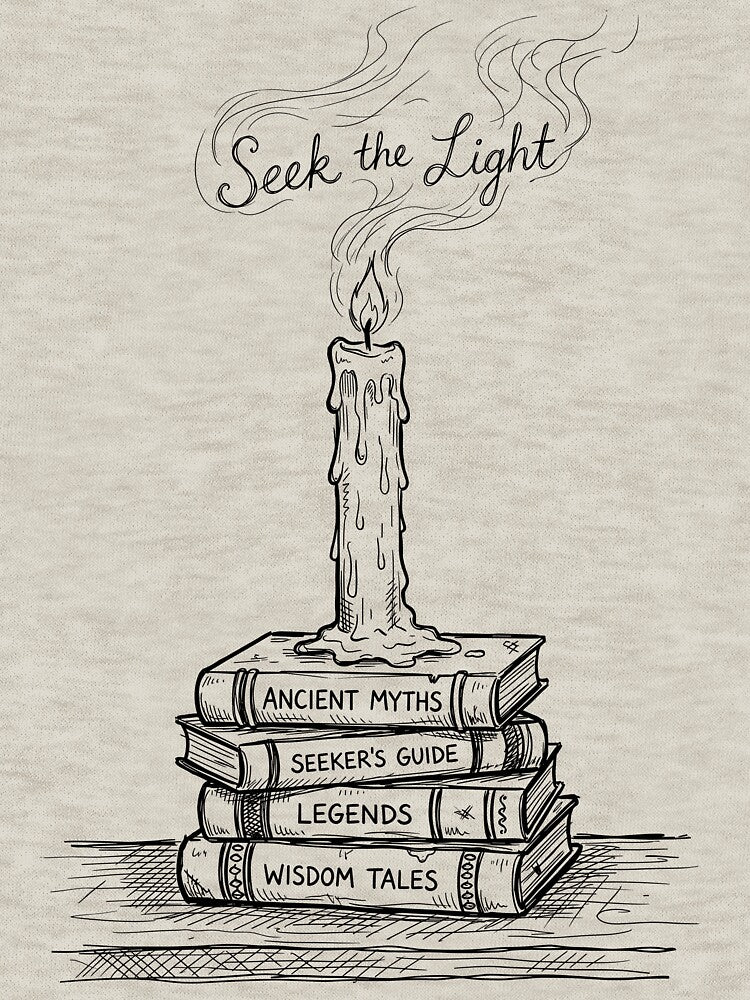 Seek the Light
ANCIENT MYTHS
SEEKER'S GUIDE
LEGENDS
WISDOM TALES